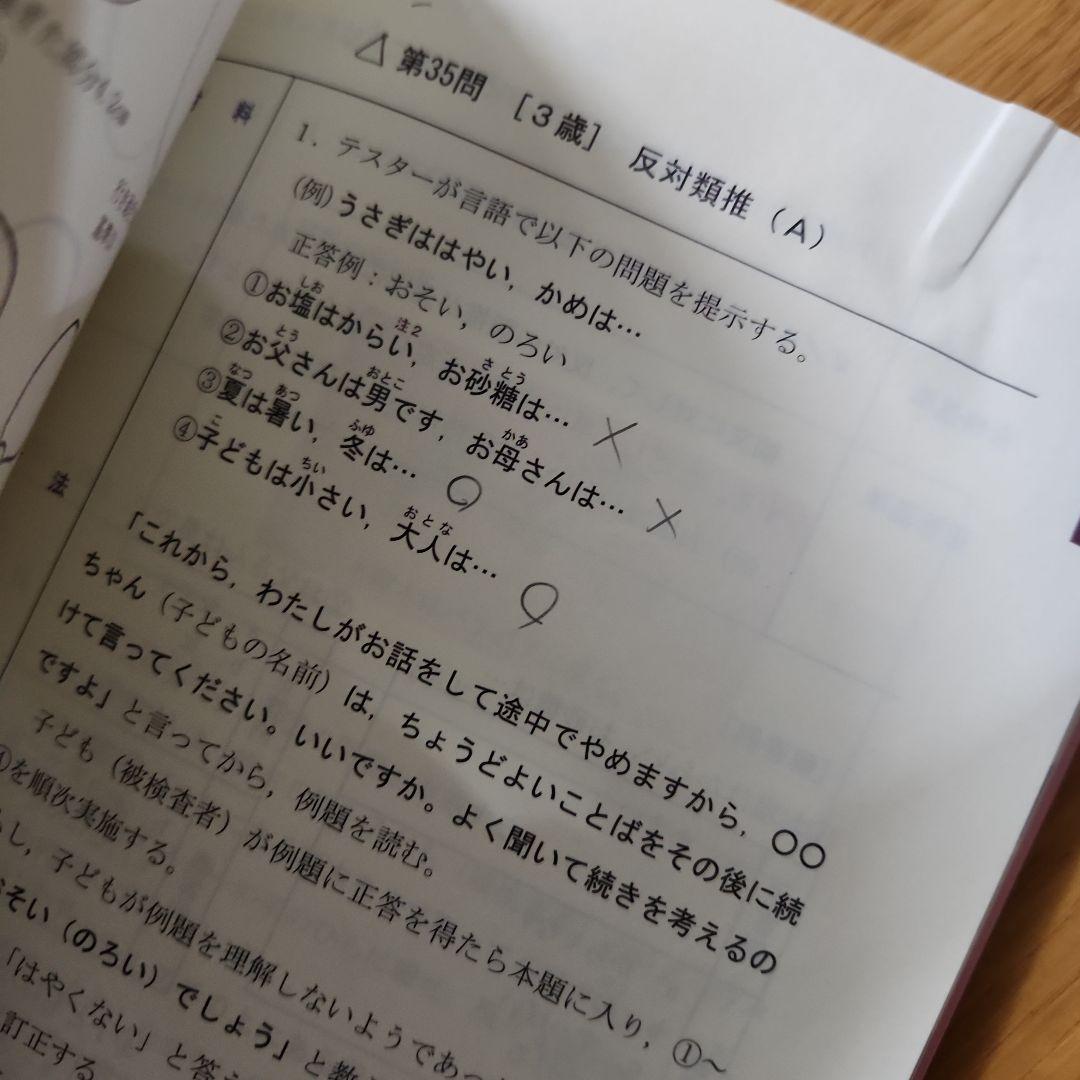 △ 第35問 ［3歳］ 反対類推（A）
料
1．テスターが言語で以下の問題を提示する。
(例)うさぎははやい，かめは…
正答例：おそい，のろい
①お塩はからい，お砂糖は…
しお 注2 さとう
②お父さんは男です，お母さんは…
とう おとこ かあ
③夏は暑い，冬は…
なつ あつ ふゆ
④子どもは小さい，大人は…
こ ちい おとな
法
「これから，わたしがお話をして途中でやめますから，〇〇
ちゃん（子どもの名前）は，ちょうどよいことばをその後に続
けて言ってください。いいですか。よく聞いて続きを考えるの
ですよ」と言ってから，例題を読む。
子ども（被検査者）が例題に正答を得たら本題に入り，①～
を順次実施する。
し，子どもが例題を理解しないようであっ
そい（のろい）でしょう」と教
「はやくない」と答
訂正する